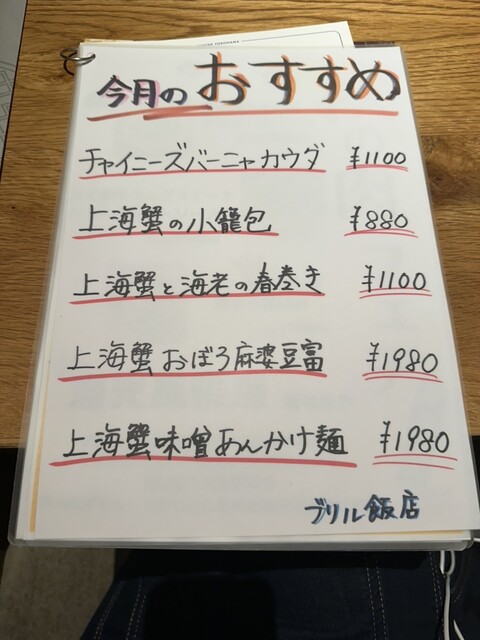 今月のおすすめ
チャイニーズバーニャカウダ ¥1100
上海蟹の小籠包 ¥880
上海蟹と海老の春巻き ¥1100
上海蟹おぼろ麻婆豆富 ¥1980
上海蟹味噌あんかけ麺 ¥1980
ブリル飯店